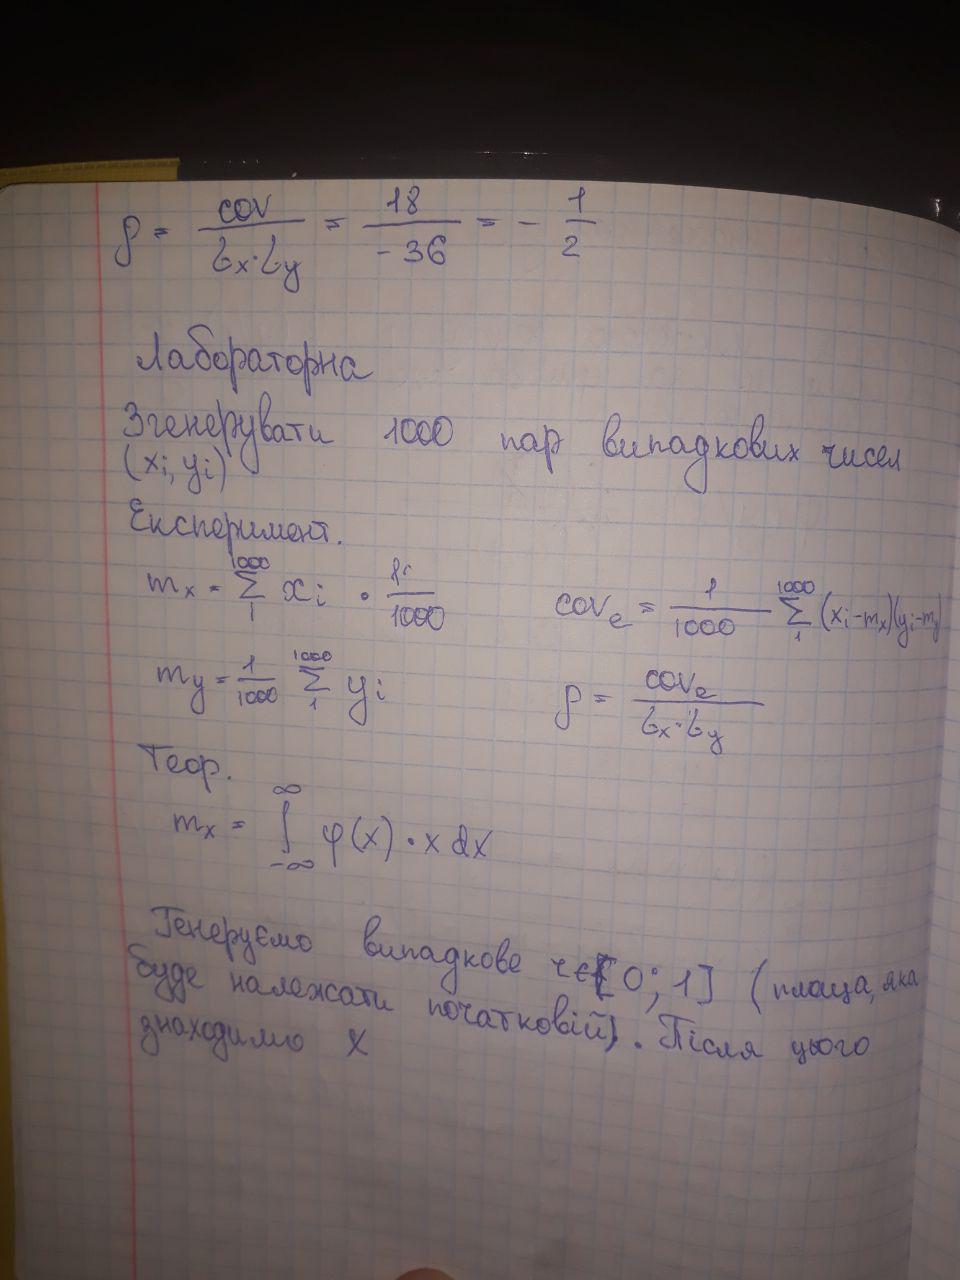 ρ = cov / (σx·σy) = 18 / -36 = - 1/2
Лабораторна
Згенерувати 1000 пар випадкових чисел
(xi, yi)
Експеримент.
mx = 1000 Σ 1 xi · 1/1000
cove = 1/1000 1000 Σ 1 (xi-mx)(yi-my)
my = 1/1000 1000 Σ 1 yi
ρ = cove / (σx·σy)
Теор.
mx = ∞ ∫ -∞ φ(x)·x dx
Генеруємо випадкове r∈[0; 1] (площа, яка
буде належати початковій). Після цього
знаходимо x